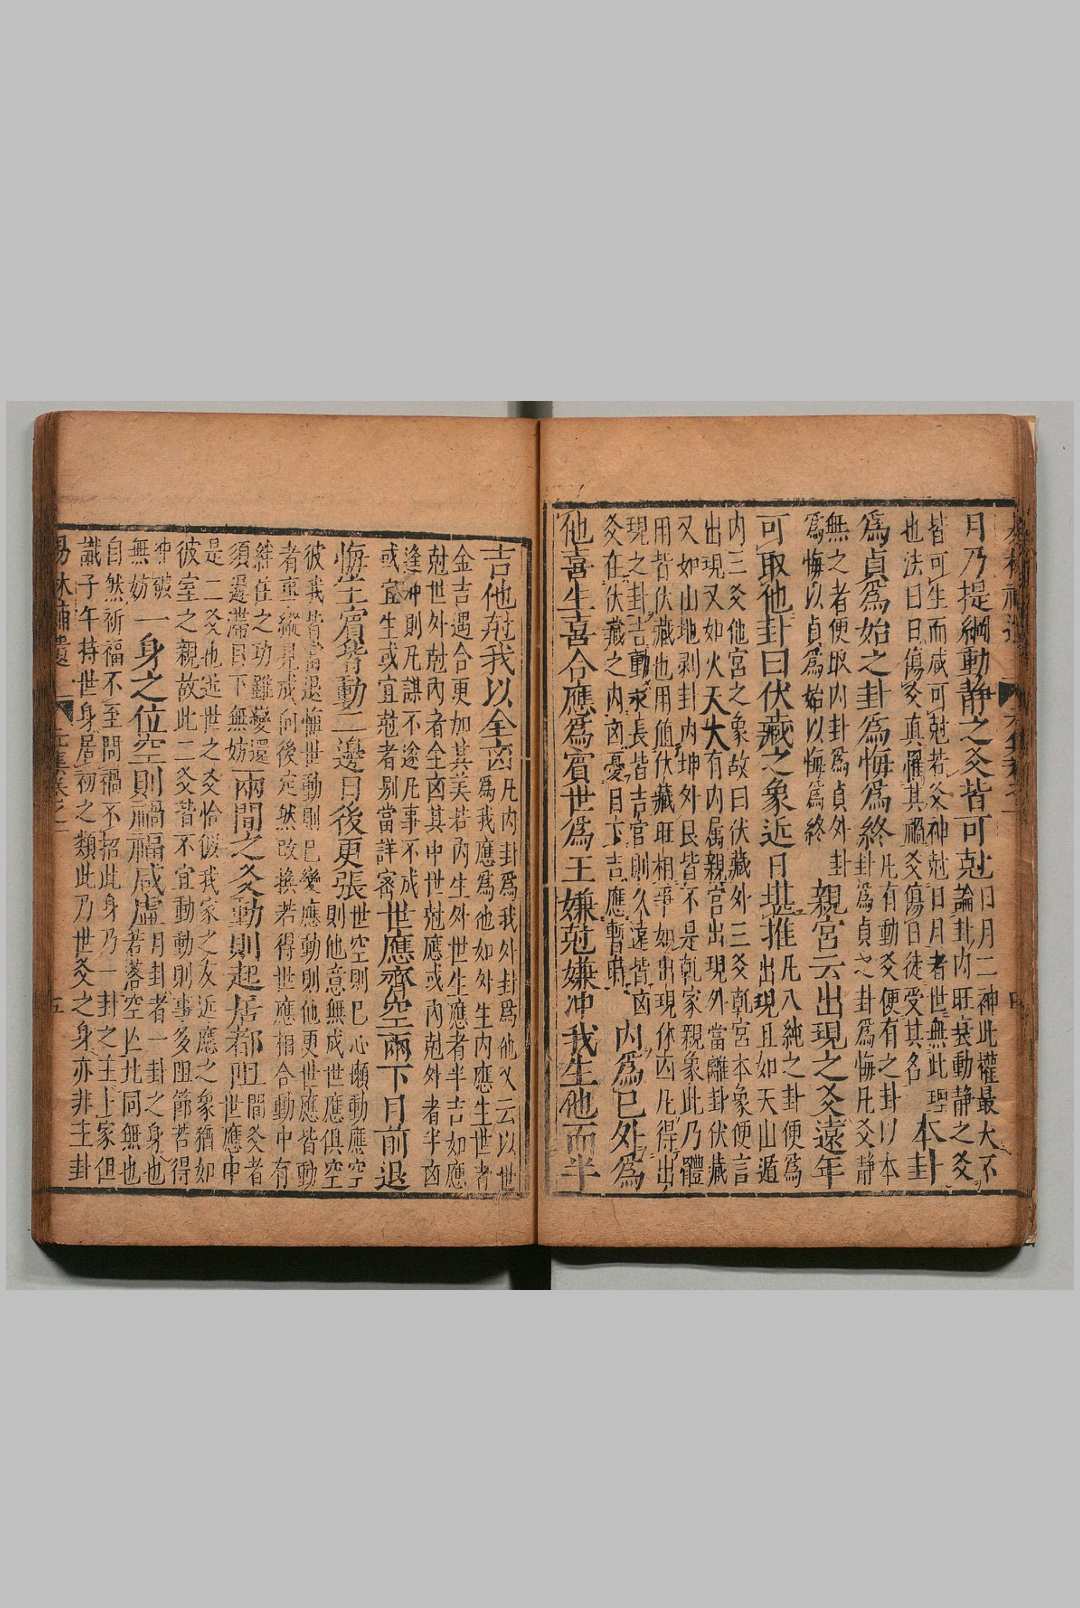 易林補遺 元集卷之一 四
月乃提綱動静之爻皆可尅
日月二神此權最大不
論卦内旺衰動静之爻
皆可生而咸可尅若爻神尅日月者世無此理
也法曰日傷爻真罹其禍爻傷日徒受其名
本卦
爲貞爲始之卦爲悔爲終
凡有動爻便有之卦以本
卦爲貞之卦爲悔凡爻静
無之者便取内卦爲貞外卦
爲悔以貞爲始以悔爲終
親宮云出現之爻遠年
可取他卦曰伏藏之象近日堪推
凡八純之卦便爲
出現且如天山遁
内三爻他宮之象故曰伏藏外三爻乾宮本象便言
出現又如火天大有内属親宮出現外當離卦伏藏
又如山地剥卦内坤外艮皆不是乾家親象此乃體
用皆伏藏也用值伏藏旺相爭如出現休囚凡得出
現之卦吉動永長皆吉官則久遠皆凶
爻在伏藏之内凶憂日下吉應暫時
内爲已外爲
他喜生喜合應爲賓世爲主嫌尅嫌冲我生他而半
吉他尅我以全凶
凡内卦爲我外卦爲他又云以世
爲我應爲他如外生内應生世者
全吉遇合更加其美若内生外世生應者半吉如應
尅世外尅内者全凶其中世尅應或内尅外者半凶
逢冲則凡謀不遂凡事不成
或宜生或宜尅者别當詳審
世應齊空兩下目前退
悔主賓皆動二邊日後更張
世空則已心懶動應空
則他意無成世應俱空
彼我皆當退悔世動則已變應動則他更世應皆動
者事縱見成向後定然改換若得世應相合動中有
絆任之功難變還
須遲滯目下無妨
兩間之爻動則起居都阻
世應中
間爻者
是二爻也近世之爻恰似我家之友近應之象猶如
彼室之親故此二爻皆不宜動動則事多阻節若得
冲破
無妨
一身之位空則禍福咸虛
月卦者一卦之身也
若落空亡此同無也
自然祈福不至問禍不招此身乃一卦之主上家但
識子午持世身居初之類此乃世爻之身亦非主卦
易林補遺 元集卷之一 五